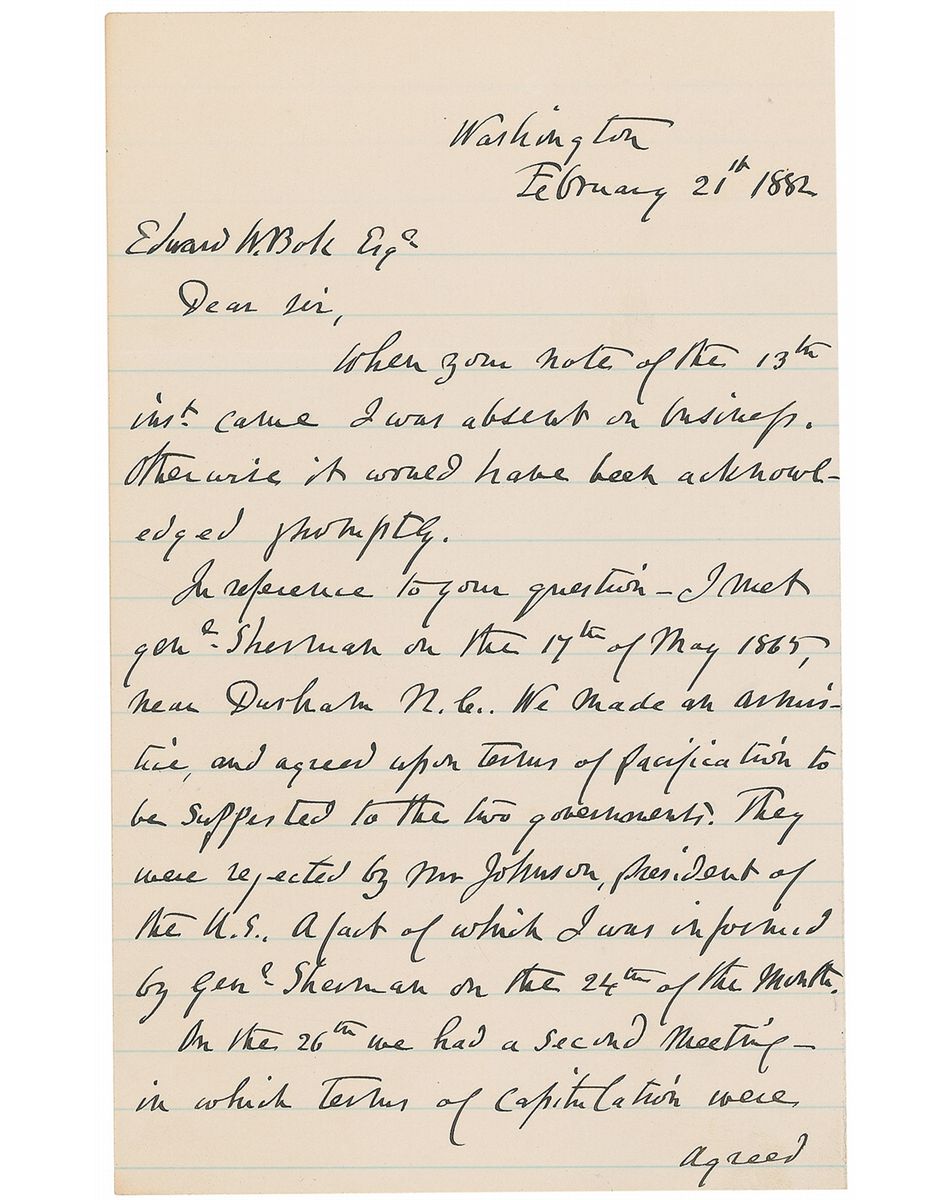 Washington
February 21th 1882
Edward W. Bok Esqr
Dear sir,
When your note of the 13th
inst. came I was absent on business.
Otherwise it would have been acknowl-
edged promptly.
In reference to your question - I met
genl. Sherman on the 17th of May 1865,
near Durham N. C.. We made an armis-
tice, and agreed upon terms of pacification to
be suggested to the two governments. They
were rejected by Mr Johnson, president of
the U.S.. A fact of which I was informed
by Genl. Sherman on the 24th of the Month.
On the 26th we had a second Meeting -
in which terms of capitulation were
agreed